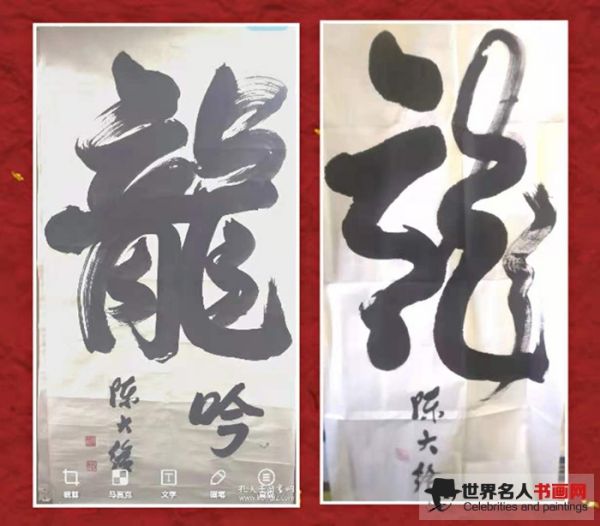 龍
吟
陈大
马赛克
文字
画笔
龍
陈大
世界名人书画网
Celebrities and paintings